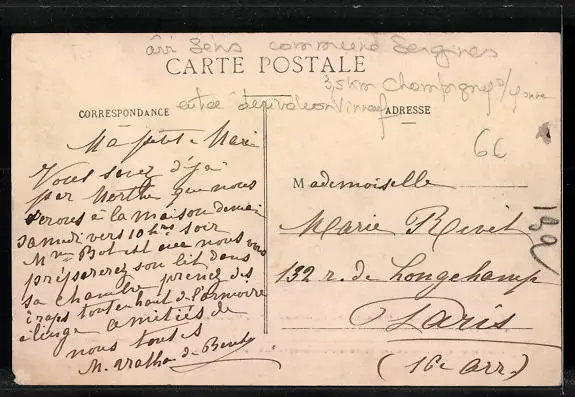 arr Sens commune Sergines
CARTE POSTALE
3,5km Champigny s/Yonne
entre et Villeneuve
CORRESPONDANCE
ADRESSE
6€
Ma petite Marie
Vous savez déjà
par Berthe que nous
serons à la maison demain
samedi vers 10 hrs soir
Mme Bot est avec nous vous
préparerez son lit dans
sa chambre prenez des
draps tout en haut de l'armoire
à linge amitiés de
nous toutes
M.
Mademoiselle
Marie Rivet
132 r. de Longchamp
Paris
(16e arr.)
199